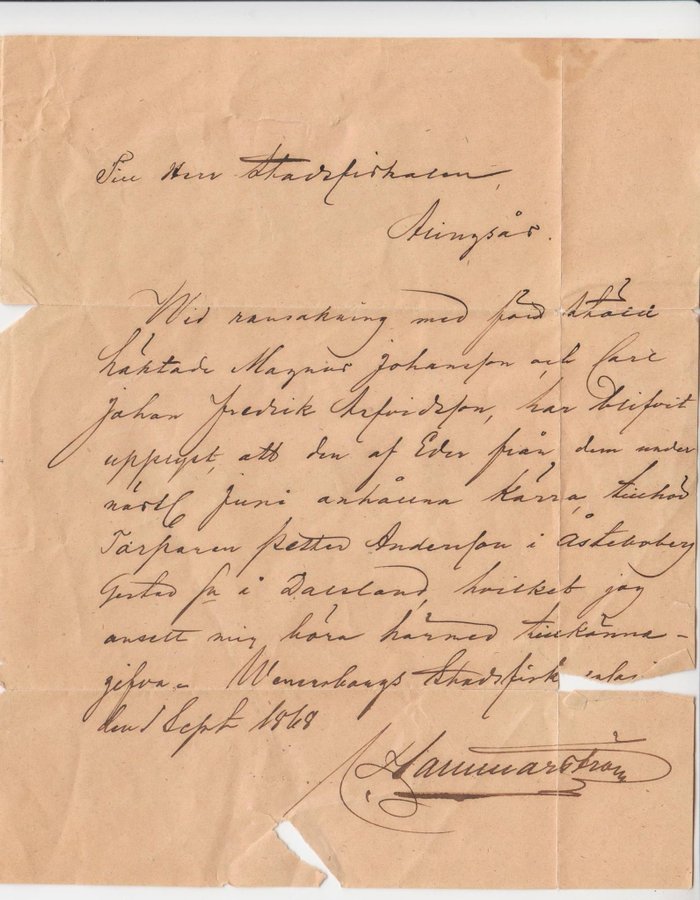 Till Herr Stadsfiskalen,
Alingsås.
Wid ransakning med för stöld
häktade Magnus Johansson och Carl
Johan Fredrik Arfvidsson, har blifvit
upplyst, att den af Eder från dem under
näst Juni anhållna kärra, tillhör
Torparen Petter Andersson i Åsteboberg
Gestad Sn å Dalsland, hvilket jag
ansett mig böra härmed tillkänna-
gifva. Wenersborgs Stadsfiskalas
den 1 Sept 1868
Hammarström